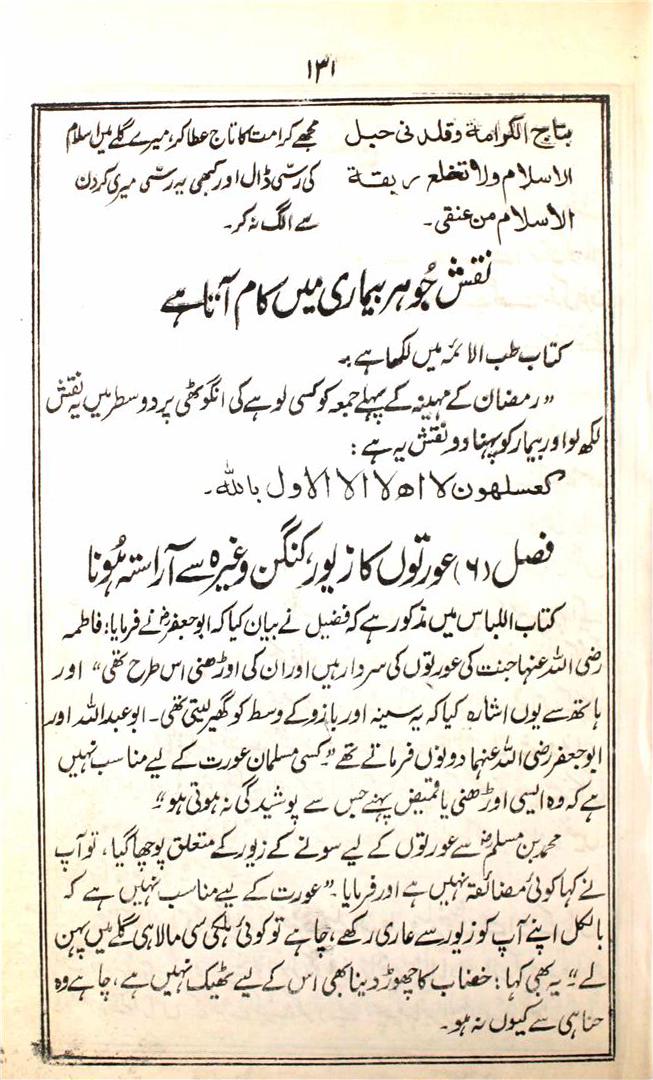 ۱۳۱
بتاج الکرامة وقلدنی حبل
الاسلام ولا تخلع ربقة
الاسلام من عنقی۔
مجھے کرامت کا تاج عطا کر، میرے گلے میں اسلام
کی رسّی ڈال اور کبھی یہ رسّی میری گردن
سے الگ نہ کر۔
نقش جُو ہر بیماری میں کام آتا ہے
کتاب طب الائمہ میں لکھا ہے:۔
"رمضان کے مہینہ کے پہلے جمعہ کو کسی لوہے کی انگوٹھی پر دو سطر میں یہ نقش
لکھ لو اور بیمار کو پہنا دو نقش یہ ہے:
کعسلهون لا اھ لا الا الا ول بالله۔
فصل (۶) عورتوں کا زیور، کنگن وغیرہ سے آراستہ ہُونا
کتاب اللباس میں مذکور ہے کہ فضیل نے بیان کیا کہ ابو جعفرؓ نے فرمایا: فاطمہ
رضی اللہ عنہا جنت کی عورتوں کی سردار ہیں اور ان کی اوڑھنی اس طرح تھی" اور
ہاتھ سے یوں اشارہ کیا کہ یہ سینہ اور بازو کے وسط کو گھیر لیتی تھی۔ ابو عبداللہ اور
ابو جعفر رضی اللہ عنہما دونوں فرماتے تھے "کسی مسلمان عورت کے لیے مناسب نہیں
ہے کہ وہ ایسی اوڑھنی یا قمیض پہنے جس سے پوشیدگی نہ ہوتی ہو۔"
محمد بن مسلمؓ سے عورتوں کے لیے سونے کے زیور کے متعلق پوچھا گیا، تو آپ
نے کہا کوئی مضائقہ نہیں ہے اور فرمایا۔ "عورت کے لیے مناسب نہیں ہے کہ
بالکل اپنے آپ کو زیور سے عاری رکھے، چاہے تو کوئی ہلکی سی مالا ہی گلے میں پہن
لے۔" یہ بھی کہا: خضاب کا چھوڑ دینا بھی اس کے لیے ٹھیک نہیں ہے، چاہے وہ
حنا ہی سے کیوں نہ ہو۔